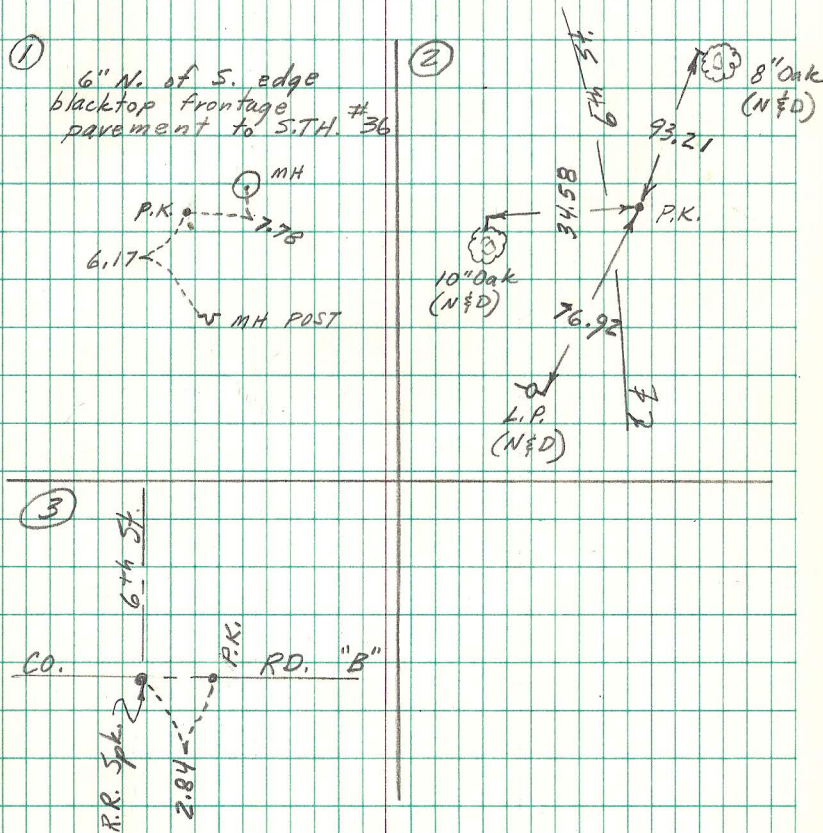 ①
6" N. of S. edge
blacktop frontage
pavement to S.T.H. #36
MH
P.K.
7.78
6.17
MH POST
②
6th St.
8" Oak
(N&D)
93.21
34.58
P.K.
10" Oak
(N&D)
76.92
L.P.
(N&D)
③
6th St.
P.K.
CO. RD. "B"
R.R. Spk.
2.84